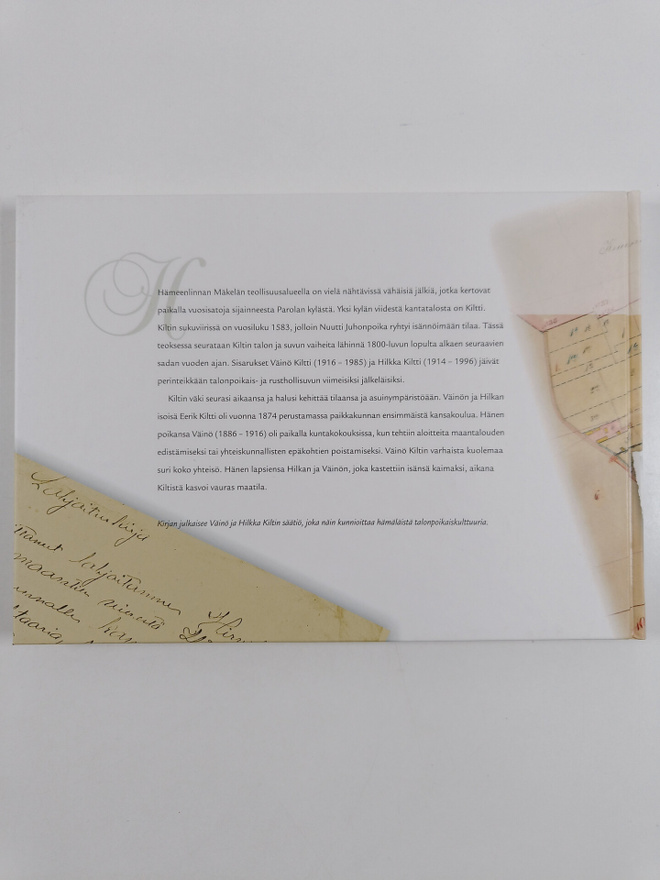 H
Hämeenlinnan Mäkelän teollisuusalueella on vielä nähtävissä vähäisiä jälkiä, jotka kertovat
paikalla vuosisatoja sijainneesta Parolan kylästä. Yksi kylän viidestä kantatalosta on Kiltti.
Kiltin sukuviirissä on vuosiluku 1583, jolloin Nuutti Juhonpoika ryhtyi isännöimään tilaa. Tässä
teoksessa seurataan Kiltin talon ja suvun vaiheita lähinnä 1800-luvun lopulta alkaen seuraavien
sadan vuoden ajan. Sisarukset Väinö Kiltti (1916 – 1985) ja Hilkka Kiltti (1914 – 1996) jäivät
perinteikkään talonpoikais- ja rusthollisuvun viimeisiksi jälkeläisiksi.
Kiltin väki seurasi aikaansa ja halusi kehittää tilaansa ja asuinympäristöään. Väinön ja Hilkan
isoisä Eerik Kiltti oli vuonna 1874 perustamassa paikkakunnan ensimmäistä kansakoulua. Hänen
poikansa Väinö (1886 – 1916) oli paikalla kuntakokouksissa, kun tehtiin aloitteita maantalouden
edistämiseksi tai yhteiskunnallisten epäkohtien poistamiseksi. Väinö Kiltin varhaista kuolemaa
suri koko yhteisö. Hänen lapsiensa Hilkan ja Väinön, joka kastettiin isänsä kaimaksi, aikana
Kiltistä kasvoi vauras maatila.
Kirjan julkaisee Väinö ja Hilkka Kiltin säätiö, joka näin kunnioittaa hämäläistä talonpoikaiskulttuuria.
Lahjoituskirja
lahjoitamme